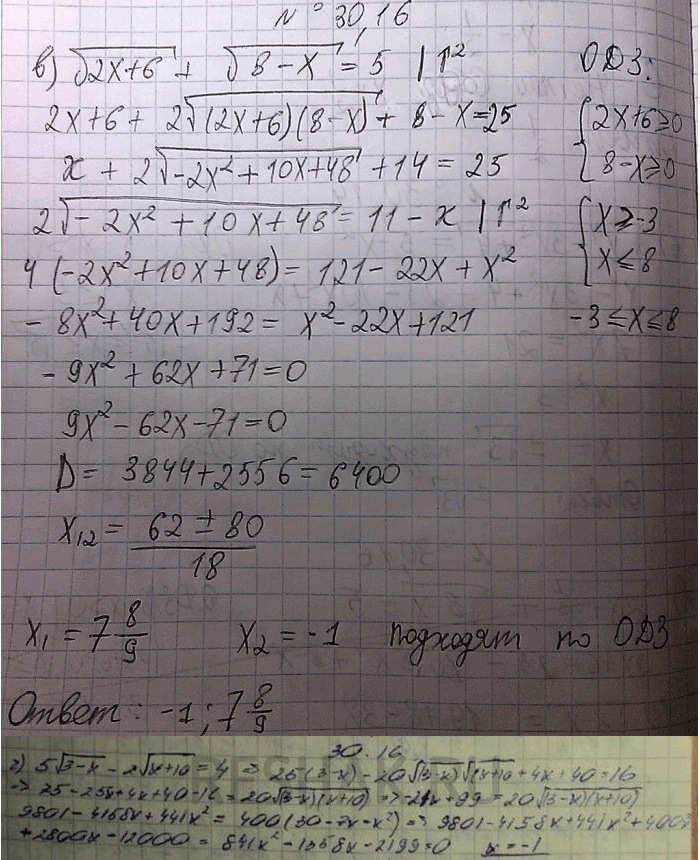 N° 30,16
в) √(2x+6) + √(8-x) = 5 | Γ²
ОДЗ:
2x+6 + 2√((2x+6)(8-x)) + 8-x=25
{2x+6≥0
x + 2√(-2x²+10x+48) +14 = 25
{8-x≥0
2√(-2x²+10x+48) = 11-x | Γ²
{x≥-3
4(-2x²+10x+48) = 121-22x+x²
{x≤8
-8x²+40x+192 = x²-22x+121
-3≤x≤8
-9x²+62x+71=0
9x²-62x-71=0
D= 3844+2556=6400
x₁₂ = (62±80)/18
x₁ = 7 8/9 x₂ = -1 подходят по ОДЗ
Ответ: -1; 7 8/9
30.16
г) 5√(3-x) - 2√(x+10) = 4 => 25(3-x) - 20√(3-x)√(x+10) + 4x+40=16
=> 75-25x+4x+40-16 = 20√((3-x)(x+10)) => -21x+99 = 20√((3-x)(x+10))
9801-4158x+441x² = 400(30-7x-x²) => 9801-4158x+441x²+400x²
+2800x-12000 = 841x²-1358x-2199=0 x=-1